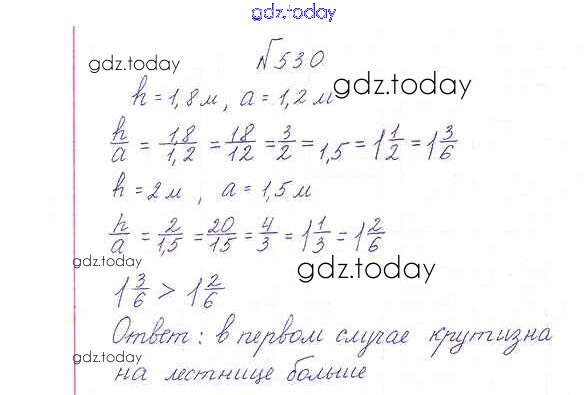 gdz.today
№530
gdz.today
h = 1,8 м, a = 1,2 м
gdz.today
h/a = 1,8/1,2 = 18/12 = 3/2 = 1,5 = 1 1/2 = 1 3/6
h = 2 м , a = 1,5 м
h/a = 2/1,5 = 20/15 = 4/3 = 1 1/3 = 1 2/6
gdz.today
gdz.today
1 3/6 > 1 2/6
Ответ: в первом случае крутизна
gdz.today
на лестнице больше